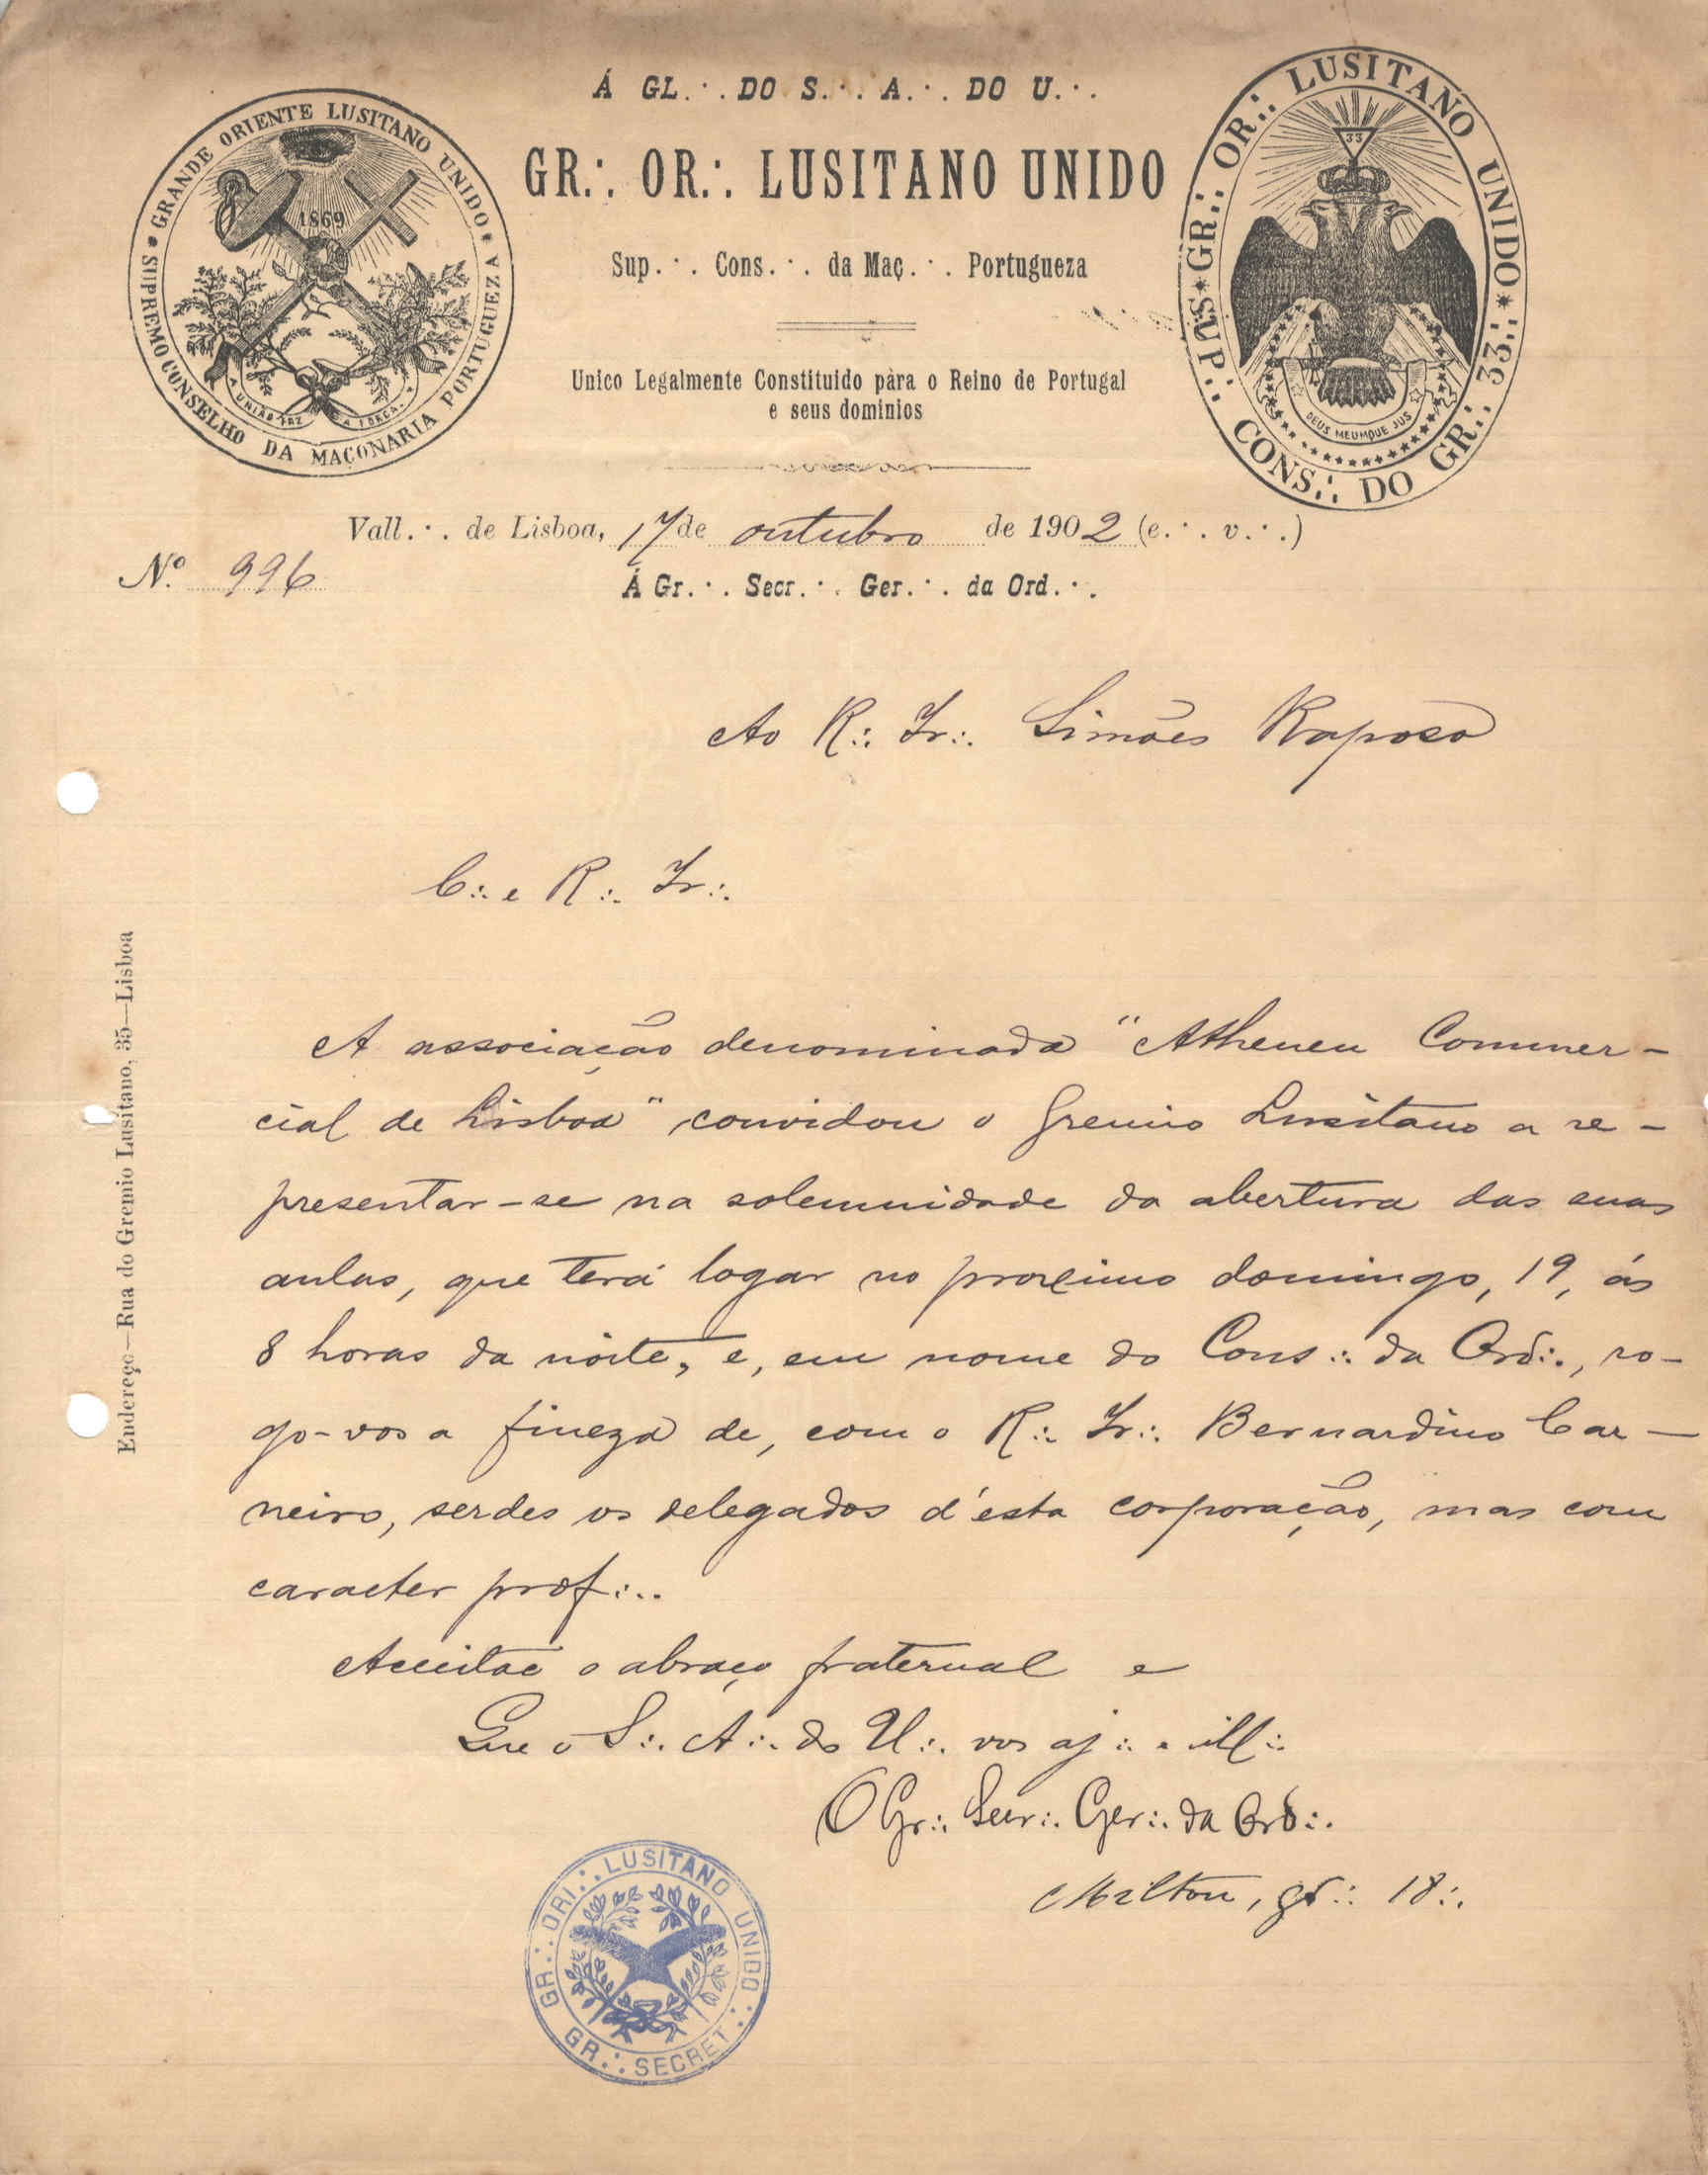 Á GL.·. DO S.·. A.·. DO U.·.
GR.·. OR.·. LUSITANO UNIDO
Sup.·. Cons.·. da Maç.·. Portugueza
Unico Legalmente Constituido pàra o Reino de Portugal
e seus dominios
GRANDE ORIENTE LUSITANO UNIDO
SUPREMO CONSELHO DA MAÇONARIA PORTUGUEZA
1869
A UNIÃO FAZ A FORÇA
GR.·. OR.·. LUSITANO UNIDO
SUP.·. CONS.·. DO GR.·. 33.·.
33
DEUS MEUMQUE JUS
Vall.·. de Lisboa, 17 de outubro de 1902 (e.·. v.·.)
N.º 996
Á Gr.·. Secr.·. Ger.·. da Ord.·.
Ao R.·. Ir.·. Simões Raposo
C.·. e R.·. Ir.·.
A associação denominada "Atheneu Commer-
cial de Lisboa" convidou o Gremio Lusitano a re-
presentar-se na solemnidade da abertura das suas
aulas, que terá logar no proximo domingo, 19, ás
8 horas da noite, e, em nome do Cons.·. da Ord.·., ro-
go-vos a fineza de, com o R.·. Ir.·. Bernardino Car-
neiro, serdes os delegados d'esta corporação, mas com
caracter prof.·..
Acceitae o abraço fraternal e
Que o S.·. A.·. do U.·. vos aj.·. e ill.·.
O Gr.·. Secr.·. Ger.·. da Ord.·.
Milton, gr.·. 18.·.
GR.·. ORI.·. LUSITANO UNIDO.·.
GR.·. SECRET.·.
Endereço—Rua do Gremio Lusitano, 35—Lisboa